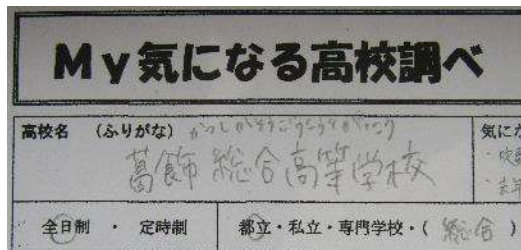 My気になる高校調べ
高校名 (ふりがな) かつしかそうごうこうとうがっこう
葛飾 総合高等学校
気にな
・吹
全日制 ・ 定時制
都立・私立・専門学校・( 総合 )